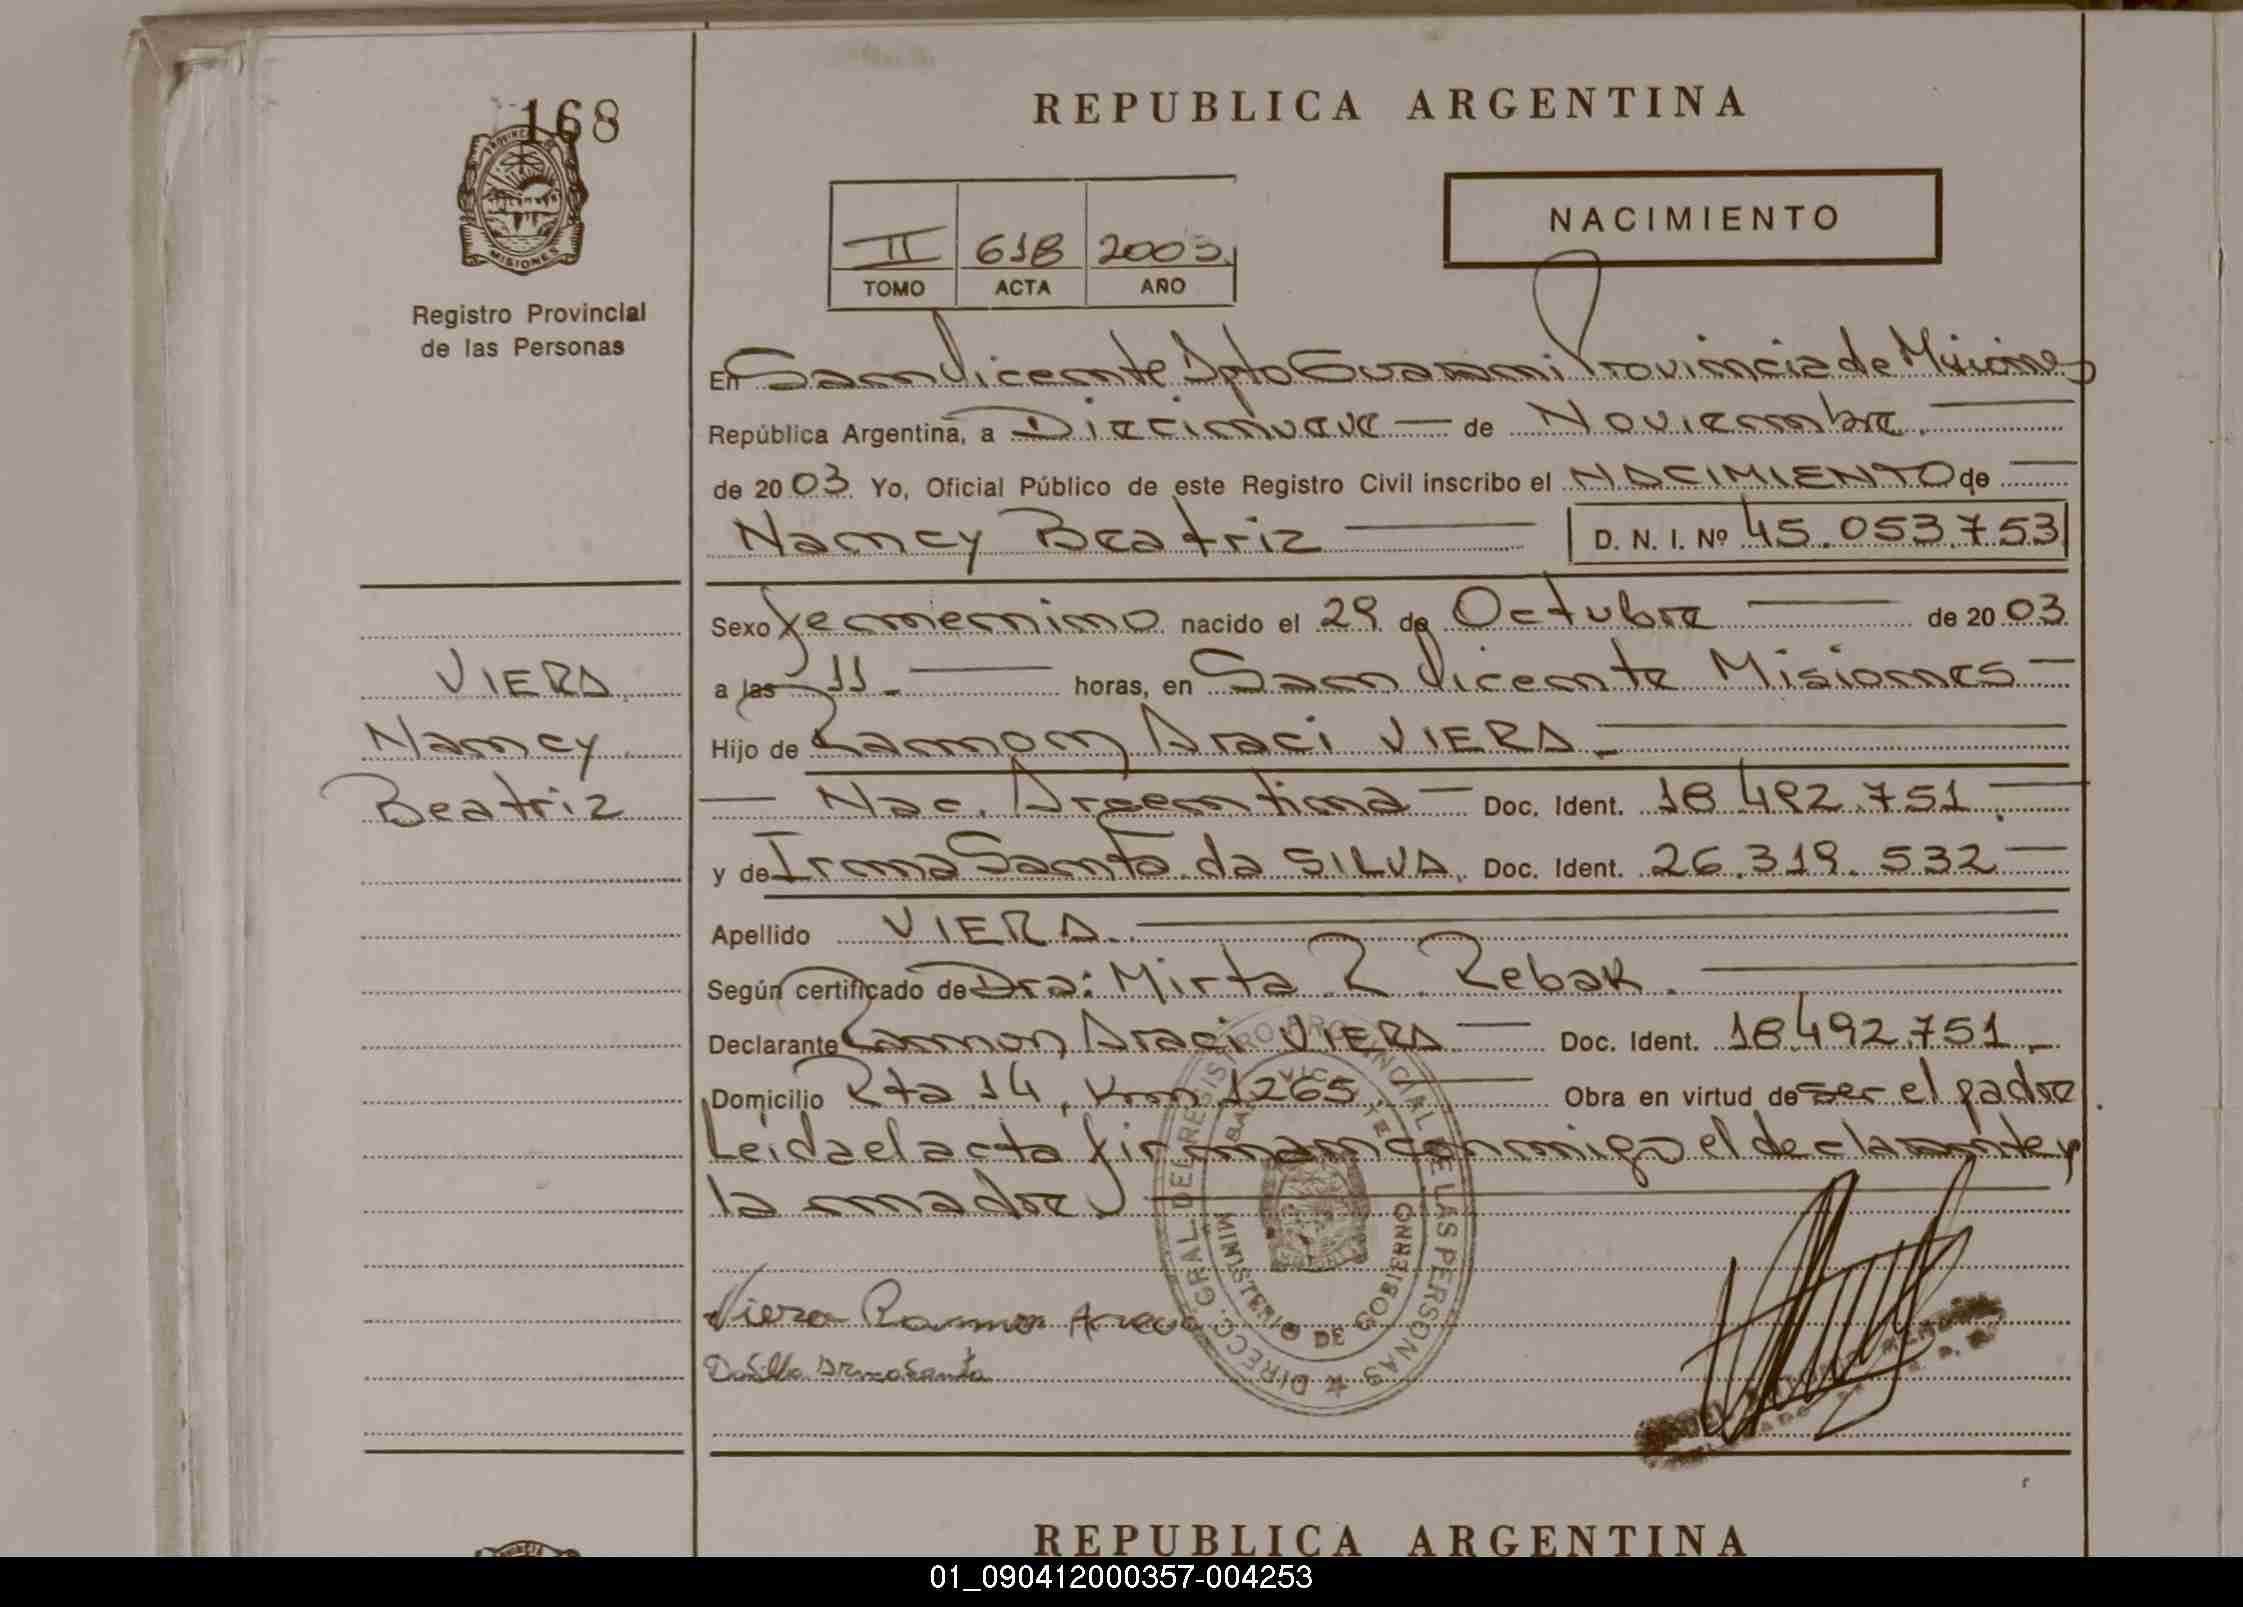 168
PROVINCIA DE
MISIONES
Registro Provincial
de las Personas
REPUBLICA ARGENTINA
II 618 2003
TOMO ACTA AÑO
NACIMIENTO
En San Vicente Dpto Guarani Provincia de Misiones
República Argentina, a Diecinueve de Noviembre
de 2003 Yo, Oficial Público de este Registro Civil inscribo el NACIMIENTO de
Nancy Beatriz D. N. I. Nº 45.053.753
Sexo femenino nacido el 29 de Octubre de 2003
a las 11 horas, en San Vicente Misiones
Hijo de Ramon Araci VIERA
Nac. Argentina Doc. Ident. 18 492.751
y de Irma Santa da SILVA, Doc. Ident. 26.319.532
Apellido VIERA
Según certificado de Dra: Mirta R. Rebak
Declarante Ramon Araci VIERA Doc. Ident. 18.492.751
Domicilio Rta 14, Km 1265 Obra en virtud de ser el padre
Leida el acta firman conmigo el declarante y
la madre
VIERA
Nancy
Beatriz
Viera Ramon
DIRECC. GRAL. DEL REGISTRO PROVINCIAL DE LAS PERSONAS
MINISTERIO DE GOBIERNO
REPUBLICA ARGENTINA
01_090412000357-004253